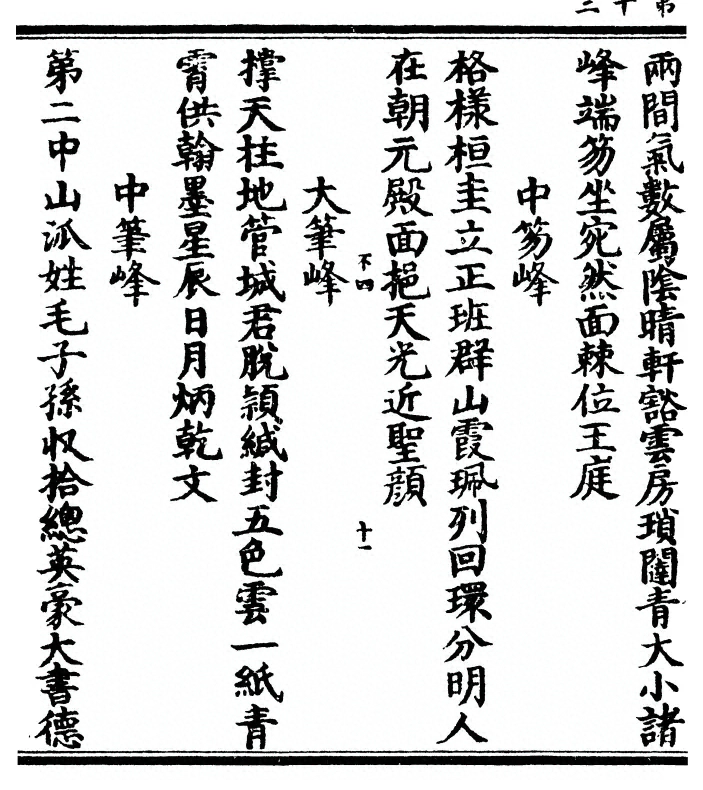 兩間氣數屬陰晴軒豁雲房瑣闥青大小諸
峰端笏坐宛然面棘位王庭
中笏峰
格様桓圭立正班群山霞珮列回環分明人
在朝元殿面挹天光近聖顔
不四
十一
大筆峰
撑天柱地管城君脫穎緘封五色雲一紙青
霄供翰墨星辰日月炳乾文
中筆峰
第二中山派姓毛子孫収拾總英豪大書德